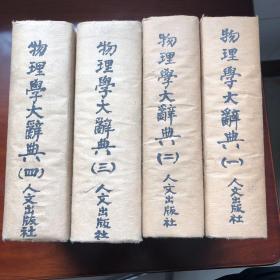 物理學大辭典(四)人文出版社
物理學大辭典(三)人文出版社
物理學大辭典(二)人文出版社
物理學大辭典(一)人文出版社